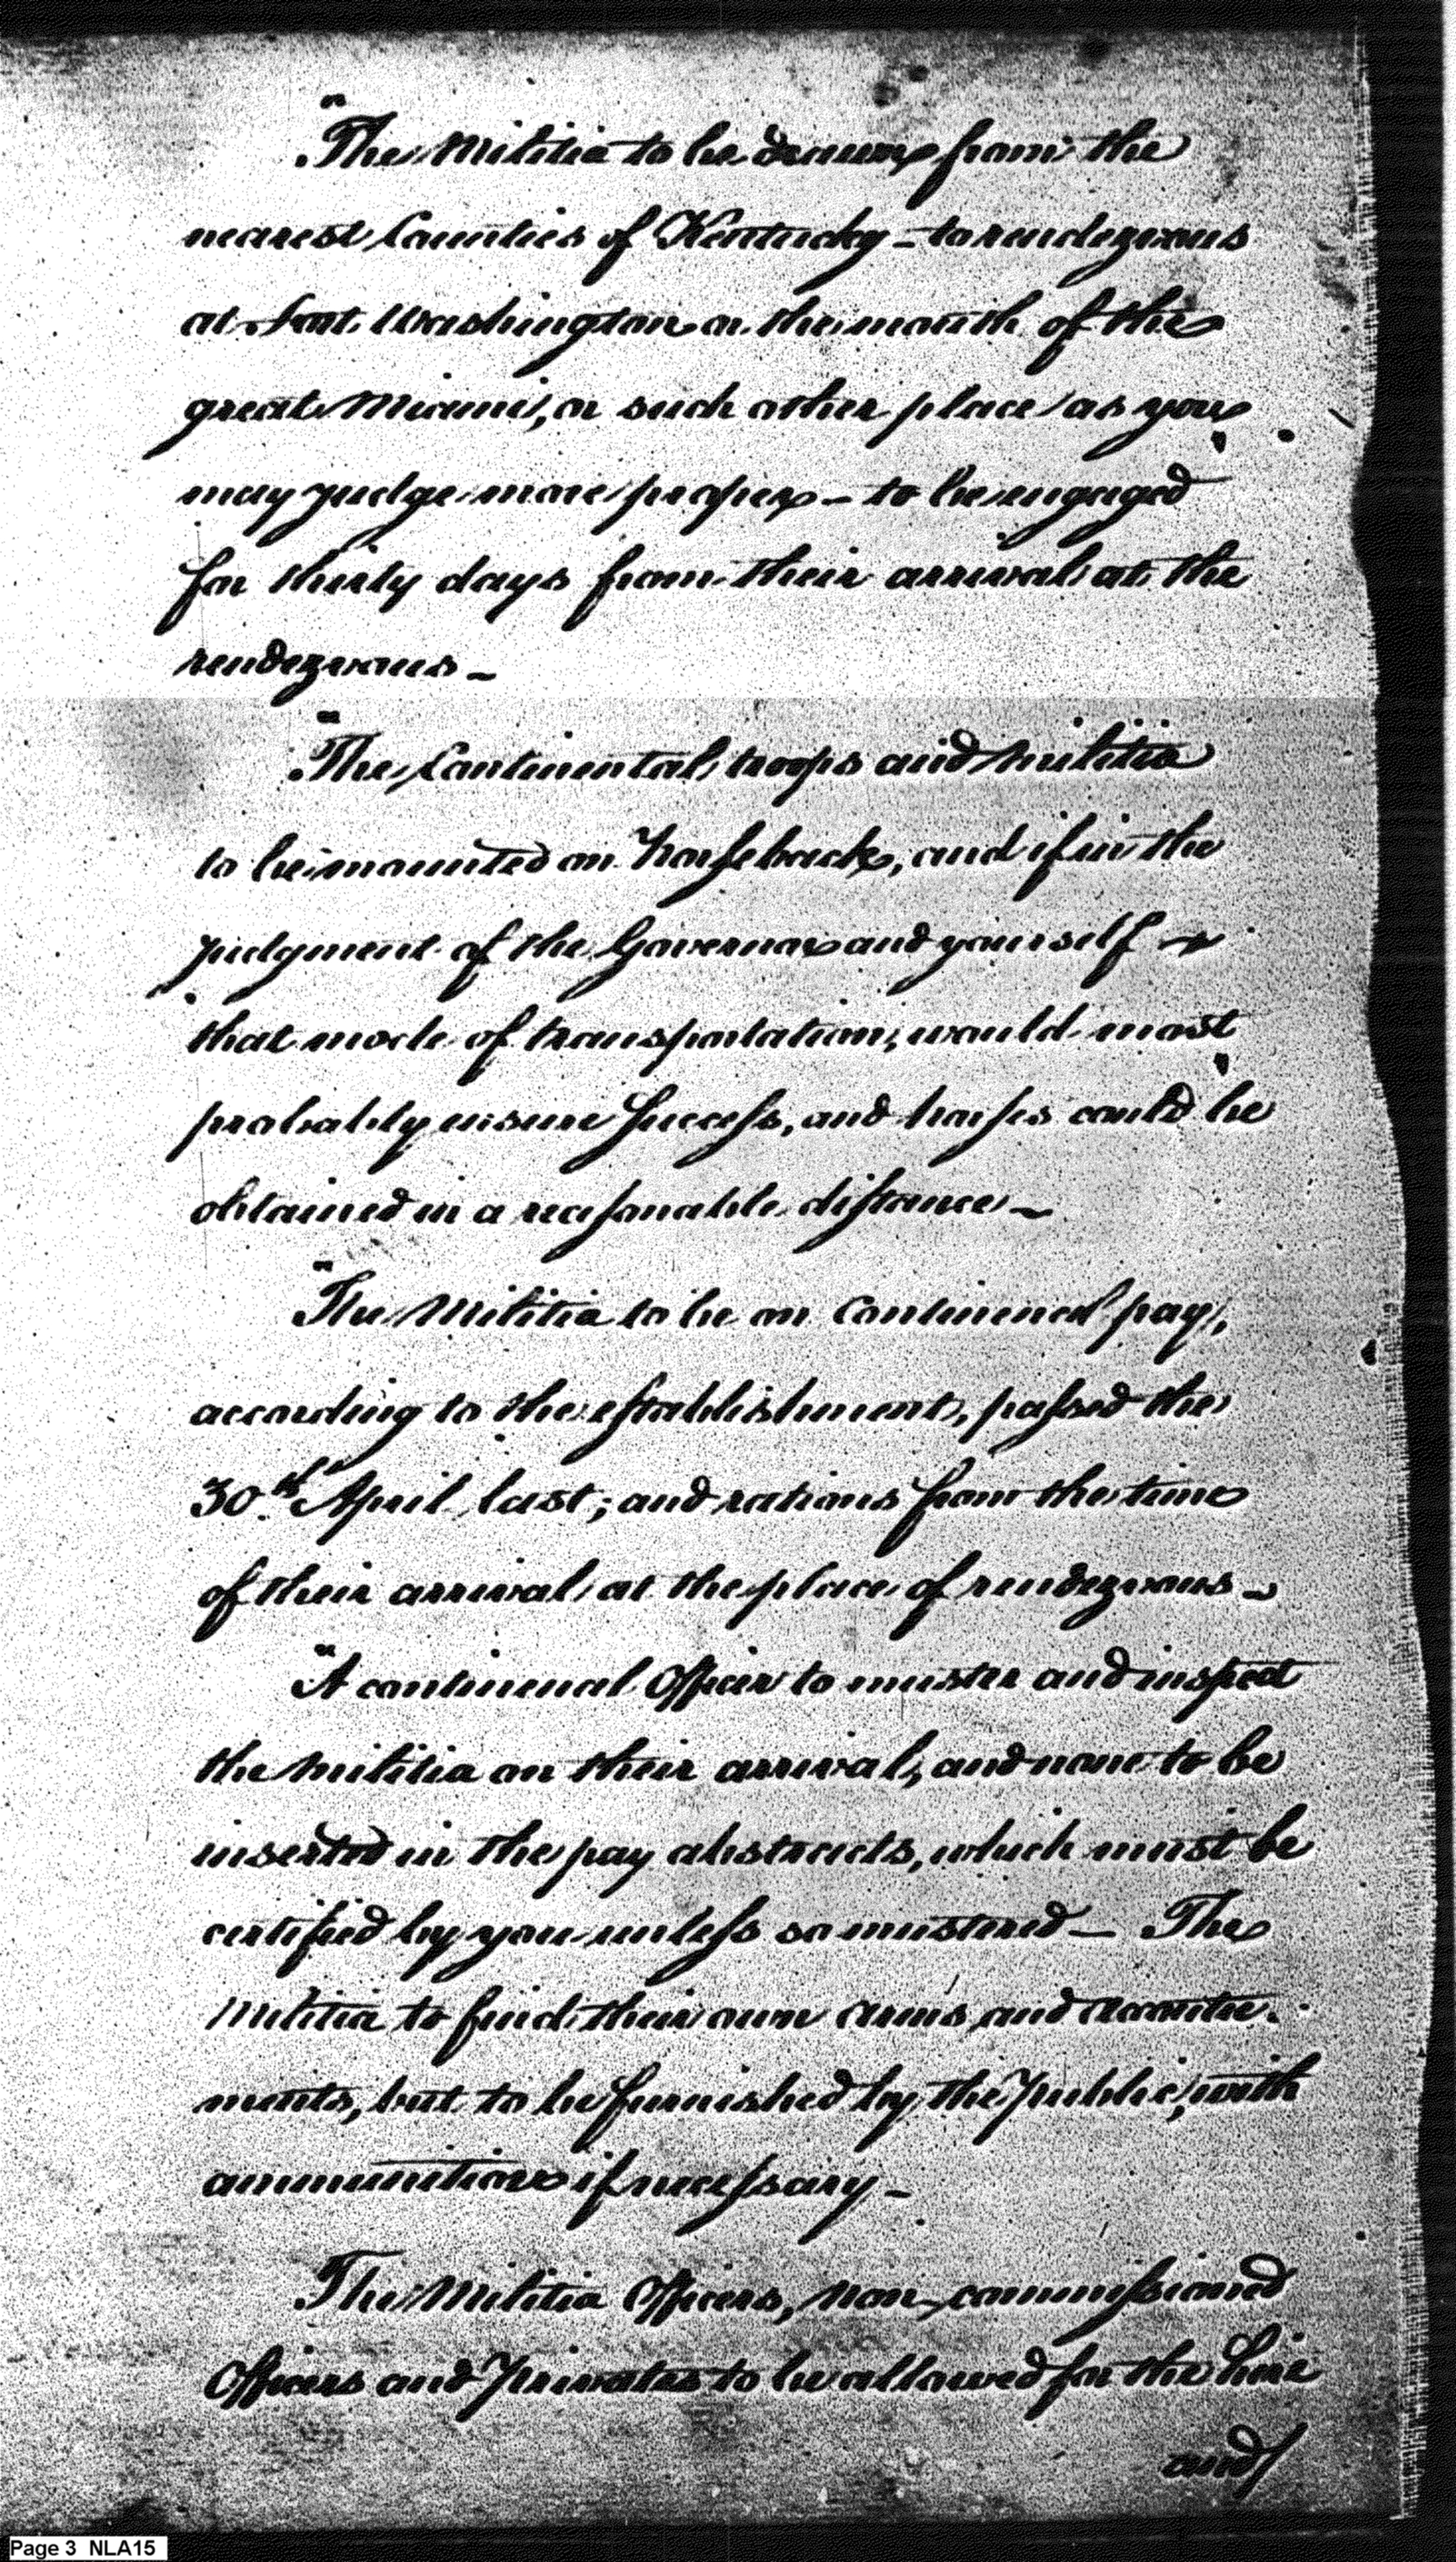 "The Militia to be drawn from the
nearest Counties of Kentucky – to rendezvous
at Fort Washington or the mouth of the
great Miami, or such other place as you
may judge more proper – to be engaged
for thirty days from their arrival at the
rendezvous –
"The Continental troops and militia
to be mounted on horseback, and if in the
judgment of the Governor and yourself
that mode of transportation, would most
probably ensure success, and horses could be
obtained in a reasonable distance –
"The Militia to be on Continental pay,
according to the establishment, passed the
30.th April last; and rations from the time
of their arrival at the place of rendezvous –
"A continental Officer to muster and inspect
the militia on their arrival, and none to be
inserted in the pay abstracts, which must be
certified by you unless so mustered – The
Militia to find their own arms and accoutre-
ments, but to be furnished by the Public, with
ammunition if necessary –
The Militia Officers, non-commissioned
Officers and Privates to be allowed for the hire
and
Page 3 NLA15